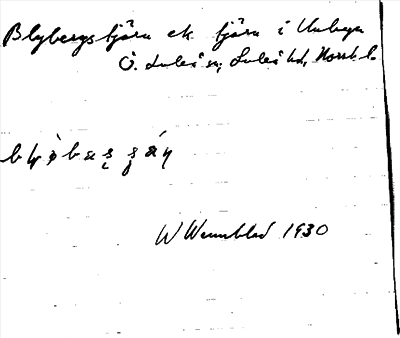 Blybergstjärn ek tjärn i Unbyn
Ö. Luleå sn, Luleå hd, Norrb. l.
W Wennblad 1930